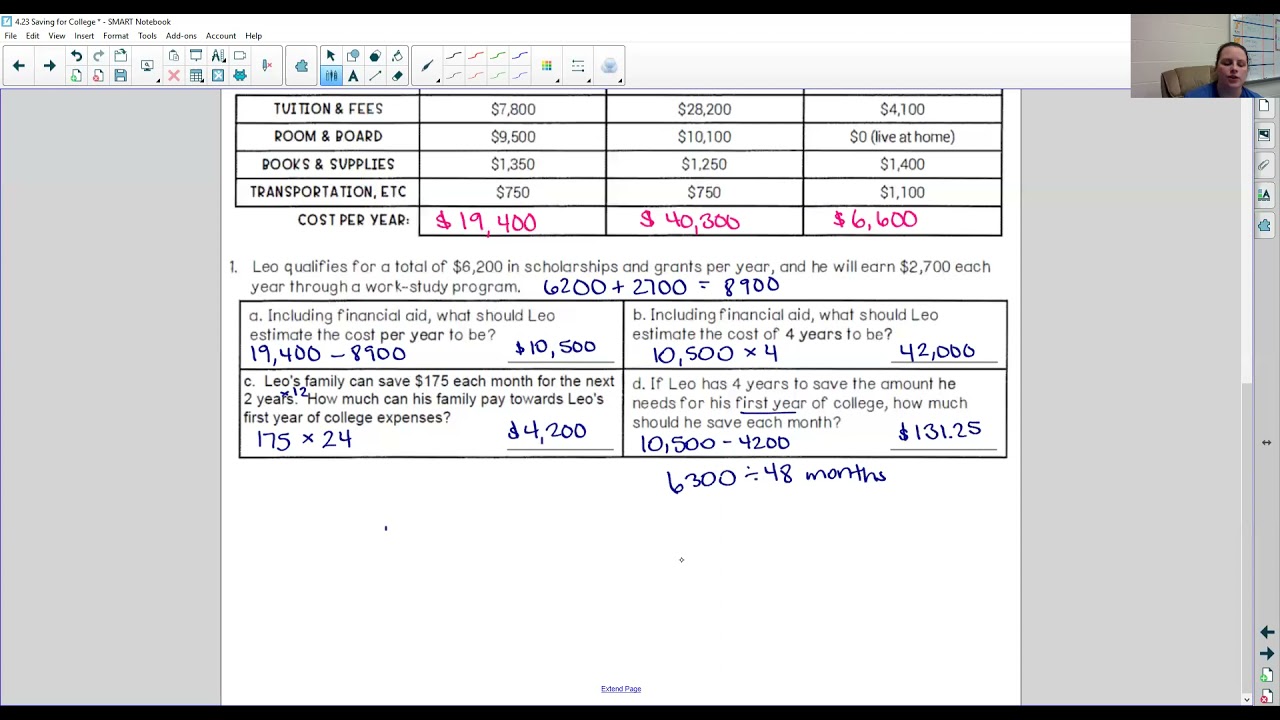 4.23 Saving for College * - SMART Notebook
File Edit View Insert Format Tools Add-ons Account Help
TUITION & FEES $7,800 $28,200 $4,100
ROOM & BOARD $9,500 $10,100 $0 (live at home)
BOOKS & SUPPLIES $1,350 $1,250 $1,400
TRANSPORTATION, ETC $750 $750 $1,100
COST PER YEAR: $19,400 $40,300 $6,600
1. Leo qualifies for a total of $6,200 in scholarships and grants per year, and he will earn $2,700 each
year through a work-study program. 6200 + 2700 = 8900
a. Including financial aid, what should Leo
estimate the cost per year to be?
19,400 - 8900 $10,500
b. Including financial aid, what should Leo
estimate the cost of 4 years to be?
10,500 × 4 42,000
c. Leo's family can save $175 each month for the next
×12
2 years. How much can his family pay towards Leo's
first year of college expenses?
175 × 24 $4,200
d. If Leo has 4 years to save the amount he
needs for his first year of college, how much
should he save each month?
10,500 - 4200 $131.25
6300 ÷ 48 months
Extend Page